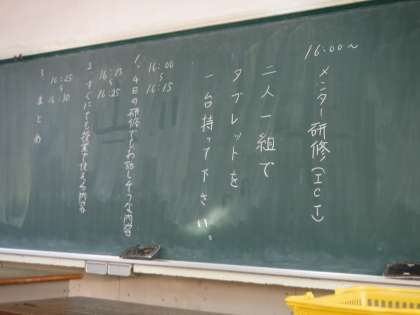 16:00～
メンター研修（ICT）
二人一組で
タブレットを
一台持って下さい。
16:00
～
16:15
1. 4日の研修でお話しそうな内容
16:15
～
16:25
2. すぐにでも授業で使える内容
16:25
～
16:30
3. まとめ